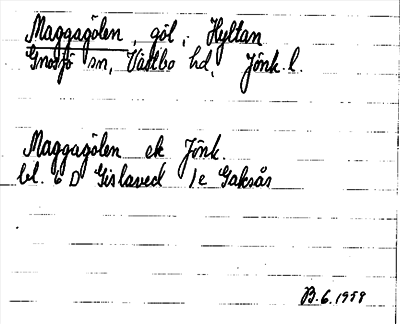 Maggagölen, göl, Hyltan
Gnosjö sn, Västbo hd, Jönk. l.
Maggagölen ek Jönk.
bl. 6 D Gislaved 1e Gaksås
B. 6. 1959